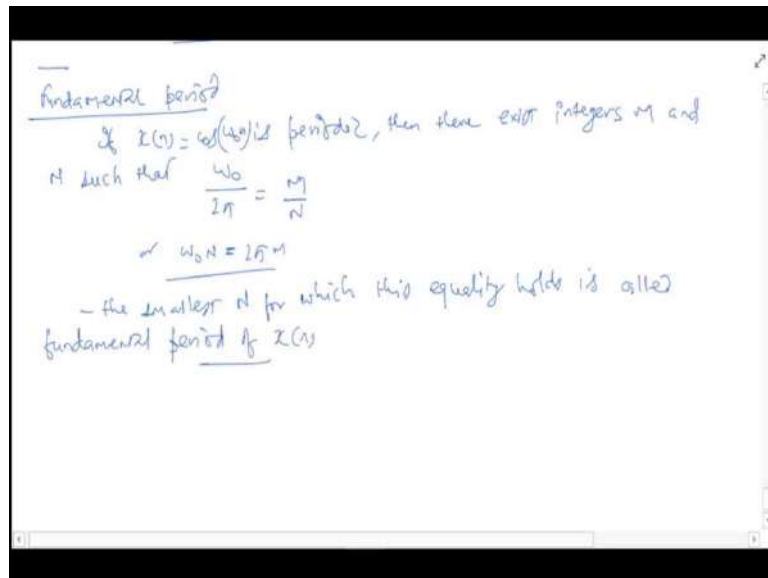 Fundamental period
If x(n) = cos(ω₀n) is periodic, then there exist integers M and
N such that ω₀/2π = M/N
or ω₀N = 2πM
- the smallest N for which this equality holds is called
fundamental period of x(n)